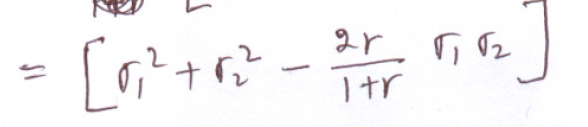 = [σ₁² + σ₂² − 2r/(1+r) σ₁ σ₂]